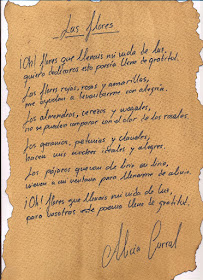 Las flores
¡Oh! flores que llenais mi vida de luz,
quiero dedicaros esta poesía llena de gratitud.
Las flores rojas, rosas y amarillas,
me ayudan a levantarme con alegría.
Los almendros, cerezos y rosales,
no se pueden comparar con el olor de los rosales.
Los geranios, petunias y claveles,
hacen mis ideales y alegres.
Los pájaros que van de lirio en lirio,
vienen a mi ventana para llenarme de alivio.
¡Oh! flores que llenais mi vida de luz,
para vosotras este poema lleno de gratitud.
Alicia Corral